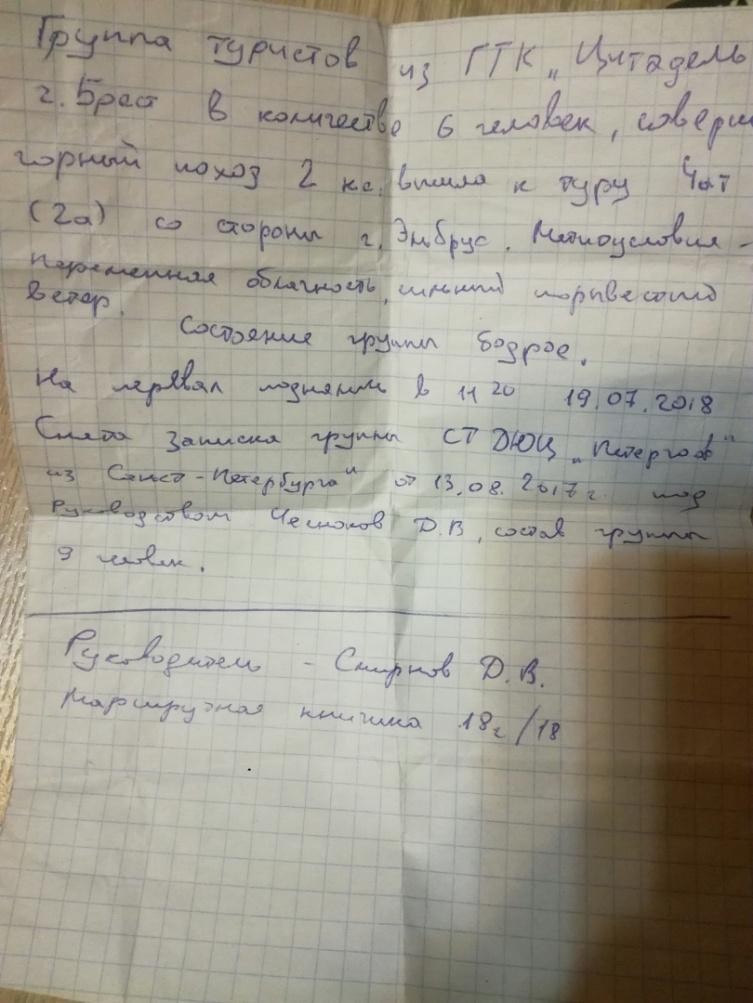 Группа туристов из ГТК „Цитадель
г. Брест в количестве 6 человек, соверш
горный поход 2 кс. вышла к туру Чат
(2а) со стороны г. Эльбрус. Метиоусловия -
переменная облачность, сильный порывестый
ветер.
Состояние группы бодрое.
На перевал поднялись в 11 20 19.07.2018
Снята записка группы СТ ДЮЦ „Петергоф"
из Санкт-Петербурга" от 13.08.2017г. под
Руководством Чесноков Д.В, состав группы
9 человек.
Руководитель - Смирнов Д.В.
Маршрутная книжка 18г/18